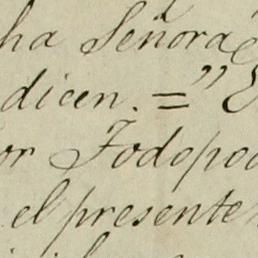 ha Señora
dicen. = "
or Todopod
el presente